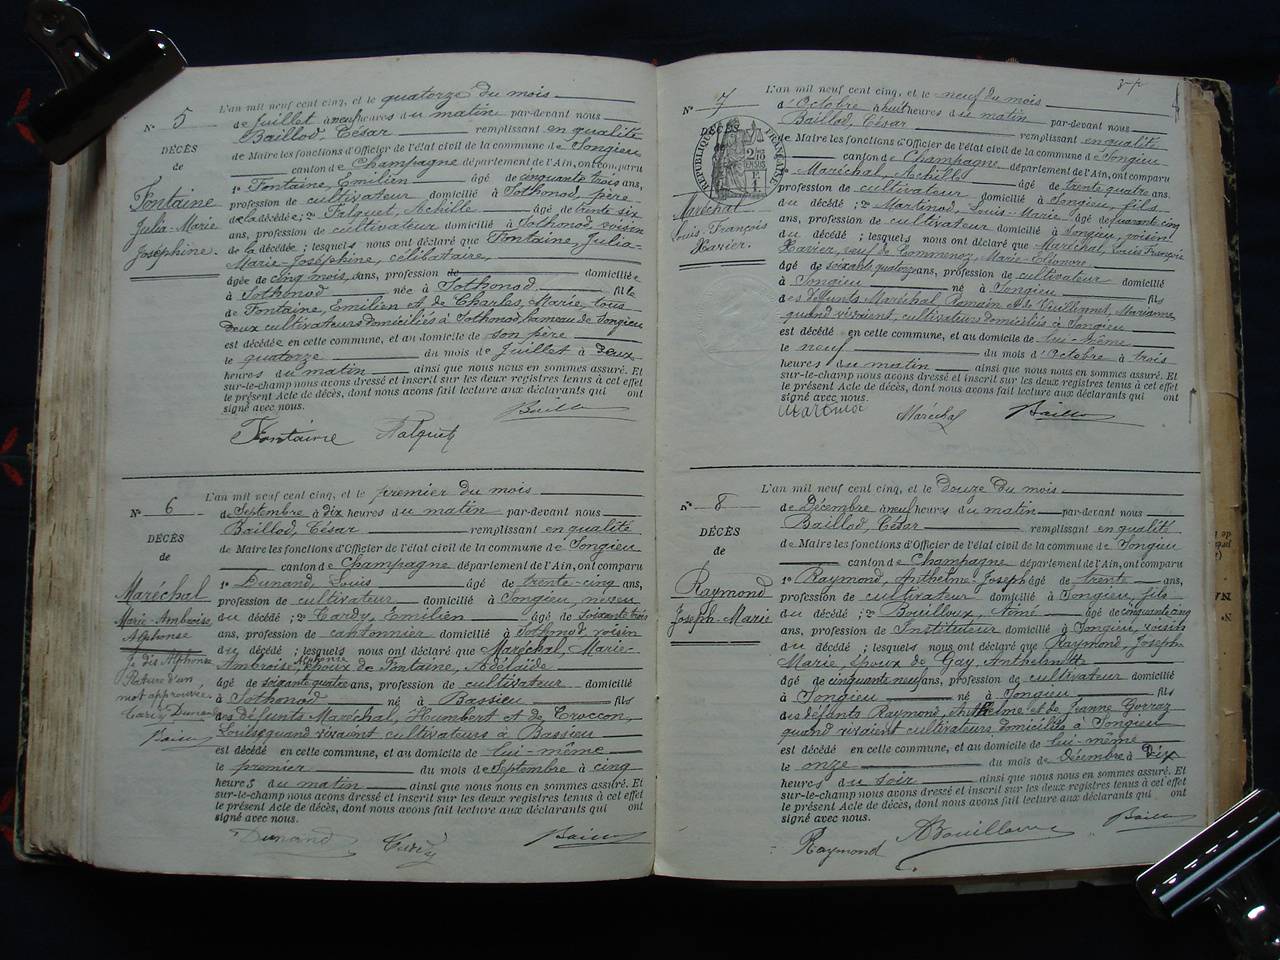 N° 5
DÉCÈS
de
Fontaine
Julia-Marie
Joséphine.
L'an mil neuf cent cinq, et le quatorze du mois
de Juillet à neuf heures du matin par-devant nous
Baillod, César remplissant en qualité
de Maire les fonctions d'Officier de l'état civil de la commune de Songieu
canton de Champagne département de l'Ain, ont comparu
1° Fontaine, Emilien âgé de cinquante trois ans,
profession de cultivateur domicilié à Sothonod, père
de la décédée; 2° Falquet, Achille âgé de trente six
ans, profession de cultivateur domicilié à Sothonod, voisin
de la décédée; lesquels nous ont déclaré que Fontaine, Julia-
Marie-Joséphine, célibataire,
âgée de cinq mois, ans, profession de domiciliée
à Sothonod née à Sothonod fille
de Fontaine, Emilien et de Charles, Marie, tous
deux cultivateurs domiciliés à Sothonod, hameau de Songieu
est décédée en cette commune, et au domicile de son père
le quatorze du mois de Juillet à deux
heures du matin ainsi que nous nous en sommes assuré. Et
sur-le-champ nous avons dressé et inscrit sur les deux registres tenus à cet effet
le présent Acte de décès, dont nous avons fait lecture aux déclarants qui ont
signé avec nous.
Fontaine Falquet Baillod
N° 6
DÉCÈS
de
Maréchal
Marie-Ambroise
Alphonse
Je dis Alphonse
Rature d'un
mot approuvée
Cardy Dunand
Baillod
L'an mil neuf cent cinq, et le premier du mois
de Septembre à dix heures du matin par-devant nous
Baillod, César remplissant en qualité
de Maire les fonctions d'Officier de l'état civil de la commune de Songieu
canton de Champagne département de l'Ain, ont comparu
1° Dunand, Louis âgé de trente-cinq ans,
profession de cultivateur domicilié à Songieu, neveu
du décédé; 2° Cardy, Emilien âgé de soixante trois
ans, profession de cantonnier domicilié à Sothonod, voisin
du décédé; lesquels nous ont déclaré que Maréchal, Marie-
Ambroise, Alphonse époux de Fontaine, Adélaïde
âgé de soixante quatre ans, profession de cultivateur domicilié
à Sothonod né à Bassieu fils
des défunts Maréchal, Humbert et de Croccon,
Louise quand vivaient cultivateurs à Bassieu
est décédé en cette commune, et au domicile de lui-même
le premier du mois de Septembre à cinq
heures du matin ainsi que nous nous en sommes assuré. Et
sur-le-champ nous avons dressé et inscrit sur les deux registres tenus à cet effet
le présent Acte de décès, dont nous avons fait lecture aux déclarants qui ont
signé avec nous.
Dunand Cardy Baillod
N° 7
DÉCÈS
RÉPUBLIQUE FRANÇAISE
Maréchal
Louis-François
Xavier.
L'an mil neuf cent cinq, et le neuf du mois
d'Octobre à huit heures du matin par-devant nous
Baillod, César remplissant en qualité
de Maire les fonctions d'Officier de l'état civil de la commune de Songieu
canton de Champagne département de l'Ain, ont comparu
1° Maréchal, Achille âgé de trente quatre ans,
profession de cultivateur domicilié à Songieu, fils
du décédé; 2° Martinod, Louis-Marie âgé de quarante cinq
ans, profession de cultivateur domicilié à Songieu, voisin
du décédé; lesquels nous ont déclaré que Maréchal, Louis François
Xavier, veuf de Commenoz, Marie-Eléonore
âgé de soixante quatorze ans, profession de cultivateur domicilié
à Songieu né à Songieu fils
des défunts Maréchal Romain et de Vuillermet, Marianne,
quand vivaient, cultivateurs domiciliés à Songieu
est décédé en cette commune, et au domicile de lui-même
le neuf du mois d'Octobre à trois
heures du matin ainsi que nous nous en sommes assuré. Et
sur-le-champ nous avons dressé et inscrit sur les deux registres tenus à cet effet
le présent Acte de décès, dont nous avons fait lecture aux déclarants qui ont
signé avec nous.
Martinod Maréchal Baillod
N° 8
DÉCÈS
de
Raymond
Joseph-Marie
L'an mil neuf cent cinq, et le douze du mois
de Décembre à neuf heures du matin par-devant nous
Baillod, César remplissant en qualité
de Maire les fonctions d'Officier de l'état civil de la commune de Songieu
canton de Champagne département de l'Ain, ont comparu
1° Raymond, Anthelme Joseph âgé de trente ans,
profession de cultivateur domicilié à Songieu, fils
du décédé; 2° Bouilloux, Aimé âgé de cinquante cinq
ans, profession de Instituteur domicilié à Songieu, voisin
du décédé; lesquels nous ont déclaré que Raymond, Joseph
Marie, époux de, Gay, Anthelmette
âgé de cinquante neuf ans, profession de cultivateur domicilié
à Songieu né à Songieu fils
des défunts Raymond, Anthelme et de Jeanne Gorraz
quand vivaient cultivateurs domiciliés à Songieu
est décédé en cette commune, et au domicile de lui-même
le onze du mois de Décembre à dix
heures du soir ainsi que nous nous en sommes assuré. Et
sur-le-champ nous avons dressé et inscrit sur les deux registres tenus à cet effet
le présent Acte de décès, dont nous avons fait lecture aux déclarants qui ont
signé avec nous.
Raymond ABouilloux Baillod